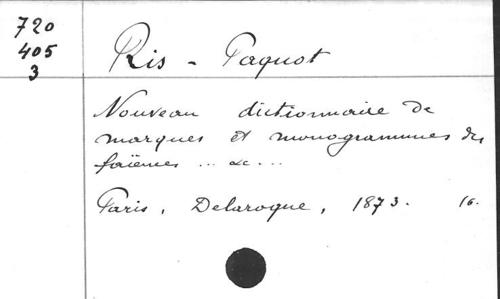 720
405
3
Ris - Paquot
Nouveau dictionnaire de
marques et monogrammes des
faïences ... &c ...
Paris, Delaroque, 1873. 16.